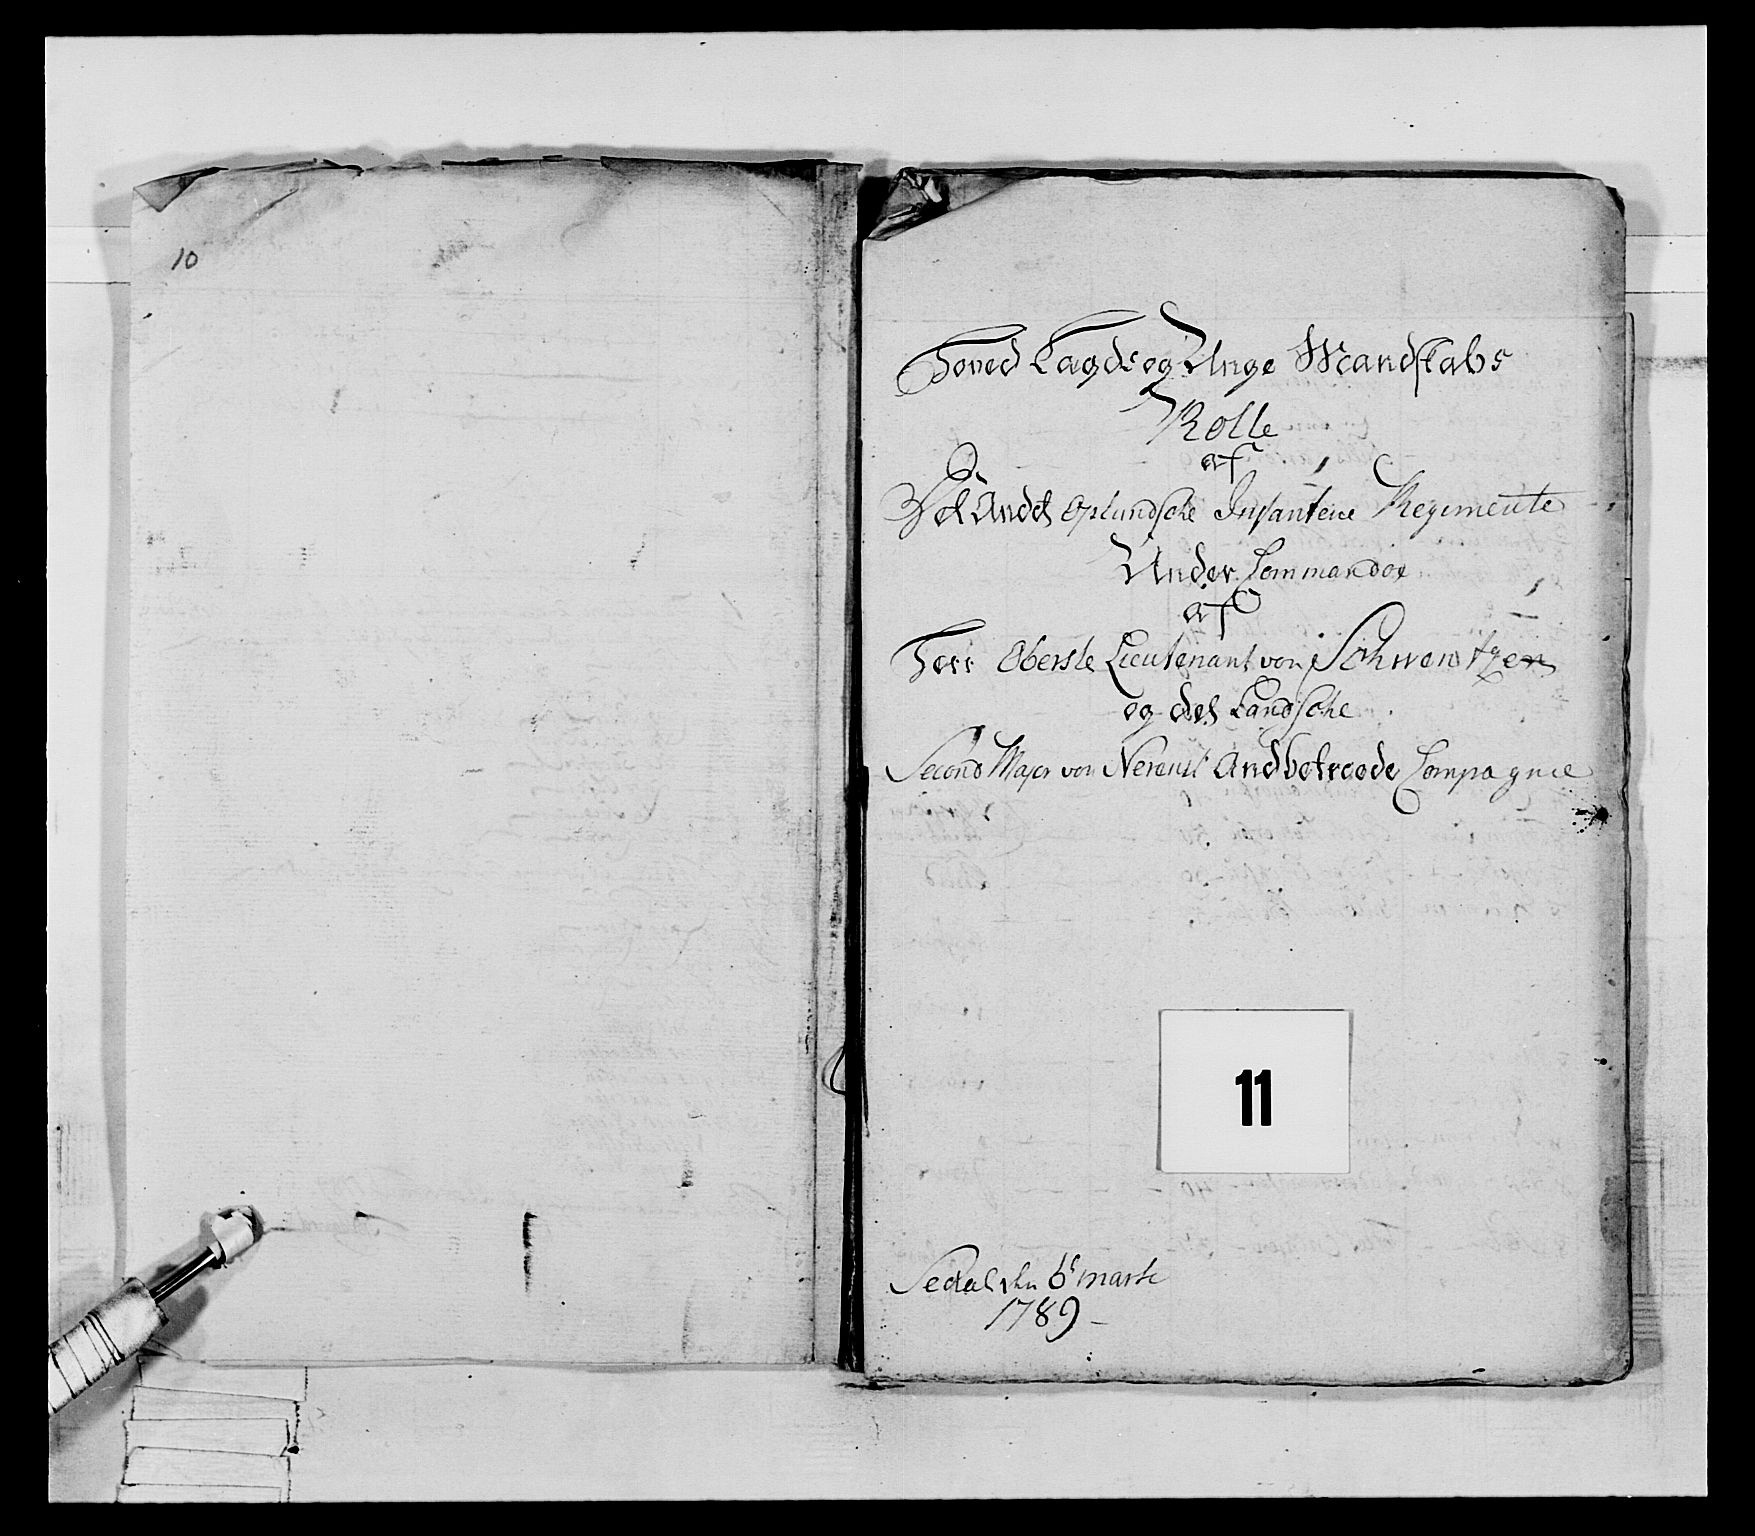 10
Hoved Lægds og Unge Mandskabs
Rolle
af
Det Andet Oplandsche Infanterie Regimente
Under Commandoe
af
Herr Oberste Lieutenant von Schwentzen
og det Landsche
Second Major von Andbetroede Compagnie
11
den 6t marti
1789